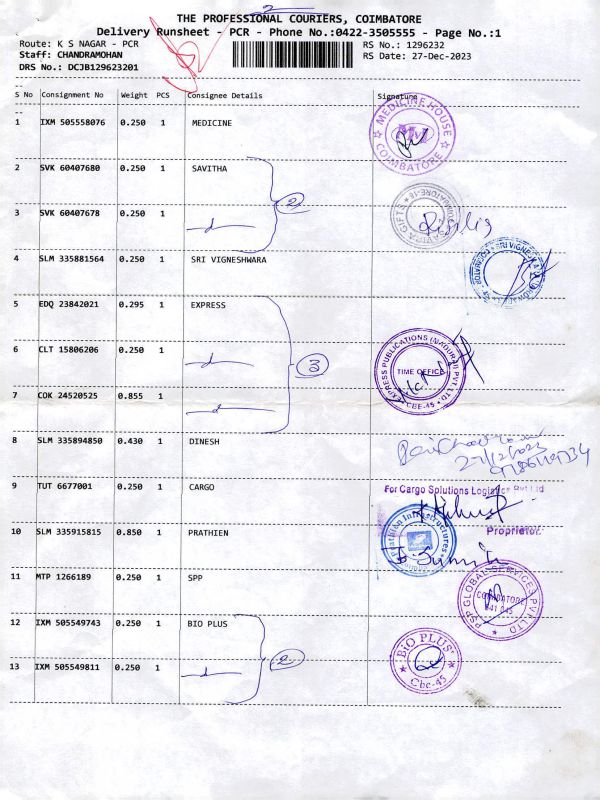 2
THE PROFESSIONAL COURIERS, COIMBATORE
Delivery Runsheet - PCR - Phone No.:0422-3505555 - Page No.:1
Route: K S NAGAR - PCR
RS No.: 1296232
Staff: CHANDRAMOHAN
RS Date: 27-Dec-2023
DRS No.: DCJB129623201
S No Consignment No Weight PCS Consignee Details Signature
1 IXM 505558076 0.250 1 MEDICINE
MEDICINE HOUSE
COIMBATORE
2 SVK 60407680 0.250 1 SAVITHA
2
3 SVK 60407678 0.250 1
4 SLM 335881564 0.250 1 SRI VIGNESHWARA
5 EDQ 23842021 0.295 1 EXPRESS
6 CLT 15806206 0.250 1
3
EXPRESS PUBLICATIONS (MADURAI) PVT. LTD.
TIME OFFICE
CBE-45
7 COK 24520525 0.855 1
8 SLM 335894850 0.430 1 DINESH
27/12/2023
9 TUT 6677001 0.250 1 CARGO
For Cargo Splutions Logistics Pvt Ltd
Proprietor
10 SLM 335915815 0.850 1 PRATHIEN
Prathien Infrastructures
11 MTP 1266189 0.250 1 SPP
PSP GLOBAL SERVICES PVT LTD
COIMBATORE
641 045
12 IXM 505549743 0.250 1 BIO PLUS
2
BIO PLUS
Cbe-45
13 IXM 505549811 0.250 1